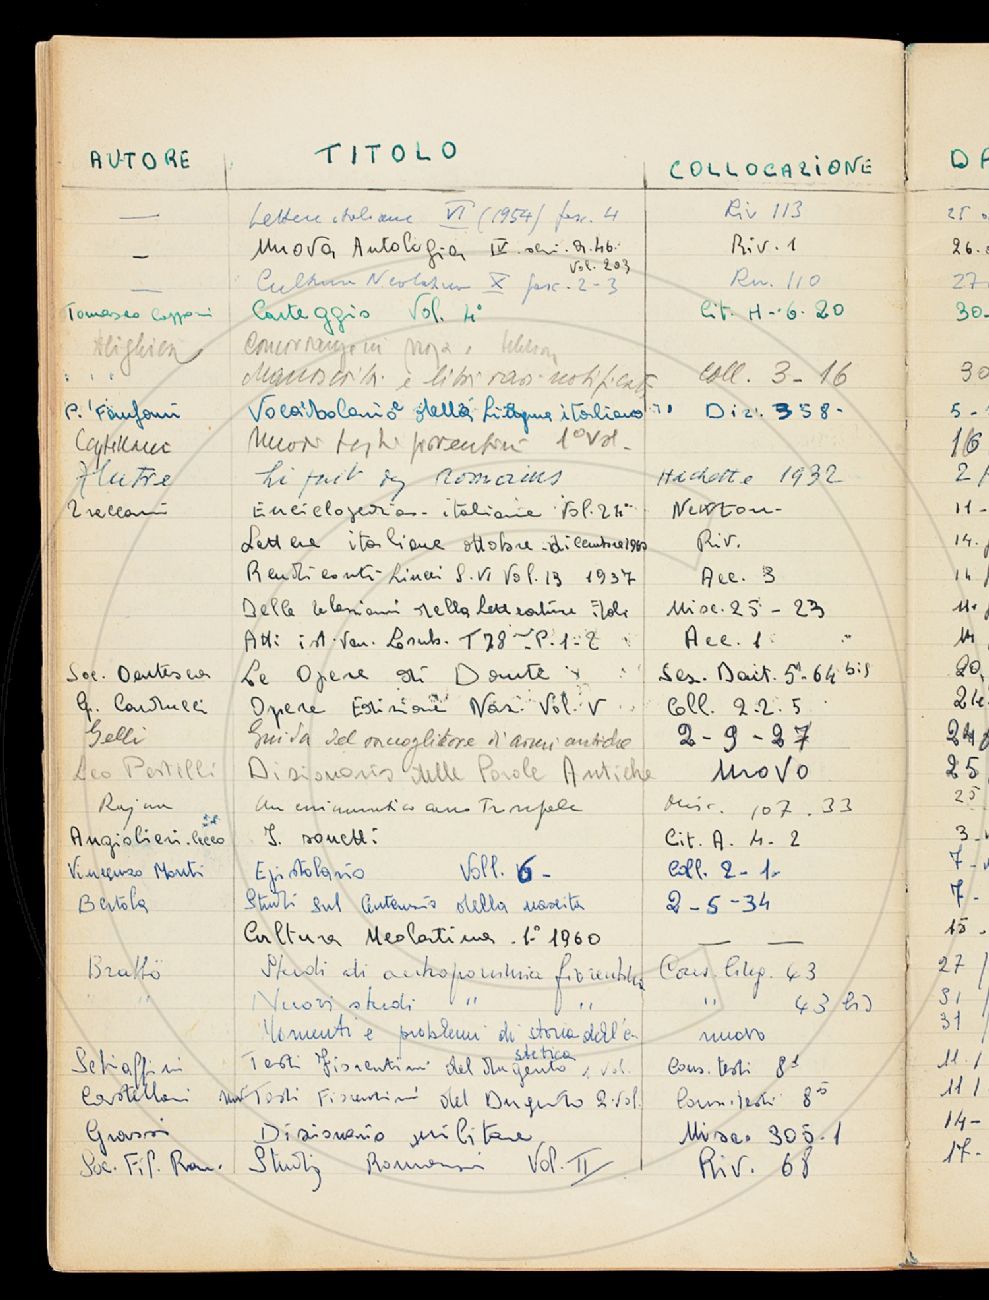 AUTORE TITOLO COLLOCAZIONE DA
— Lettere italiane VI (1954) fasc. 4 Riv 113 25
— Nuova Antologia IV. seri. a. 46. Riv. 1 26.
Vol. 203
— Cultura Neolatina X fasc. 2-3 Riv. 110 27
Tommaseo Capponi Carteggio Vol. 4° Cit. H-6-20 30-
Alighieri
" " Manoscritti e libri rari notificati Coll. 3-16 30
P. Fanfani Vocabolario della lingua italiana Diz. 358- 5-
Castellani Nuovi testi fiorentini 1° vol. 16
Li fait des Romains Hachette 1932 2
Treccani Enciclopedia italiana Vol. 24° 11-
Lettere italiane ottobre-dicembre 1960 Riv. 14.
Rendiconti Lincei S. VI Vol. 13 1937 Acc. 3 14
Delle relazioni della letteratura Misc. 25-23
Atti ist. Ven. Lomb. T 78 P. 1-2 Acc. 1 14
Soc. Dantesca Le Opere di Dante Sez. Dait. 5-64 bis 20
G. Carducci Opere Edizione Naz. Vol. V Coll. 2.2.5
Gelli Guida del raccoglitore d'armi antiche 2-9-27 24
Leo Pestelli Dizionario delle Parole Antiche Nuovo 25
Rajna Misc. 107.33 25
Angiolieri Cecco I sonetti Cit. A. 4-2 3-
Vincenzo Monti Epistolario Voll. 6- Coll. 2-1- 7-
Bertola Studi sul centenario della nascita 2-5-34 7-
Cultura Neolatina. 1° 1960 — — 15.
Brattö Studi di antroponimia fiorentina Cons. ling. 43 27
" " Nuovi studi " " " 43 bis 31
Momenti e problemi di storia dell'e nuovo 31
stetica
Schiaffini Testi Fiorentini del Dugento 1 vol. Cons. testi 8 11
Castellani Testi Fiorentini del Dugento 2 vol. Cons. testi 8 11
Grassi Dizionario militare Misc. 305.1 14-
Soc. Fil. Rom. Studj Romanzi Vol. II Riv. 68 17-